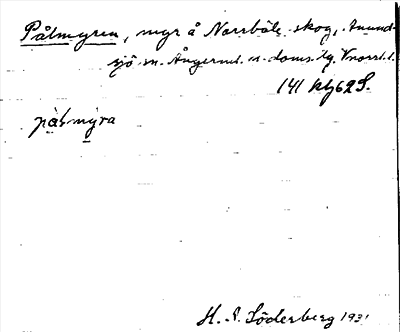 Pålmyren, myr å Norrböle skog, Anund-
sjö sn. Ångerml. n. doms. tg. Vnorrl. l.
141 Kbg 62 S.
pålmyra
H. S. Söderberg 1931